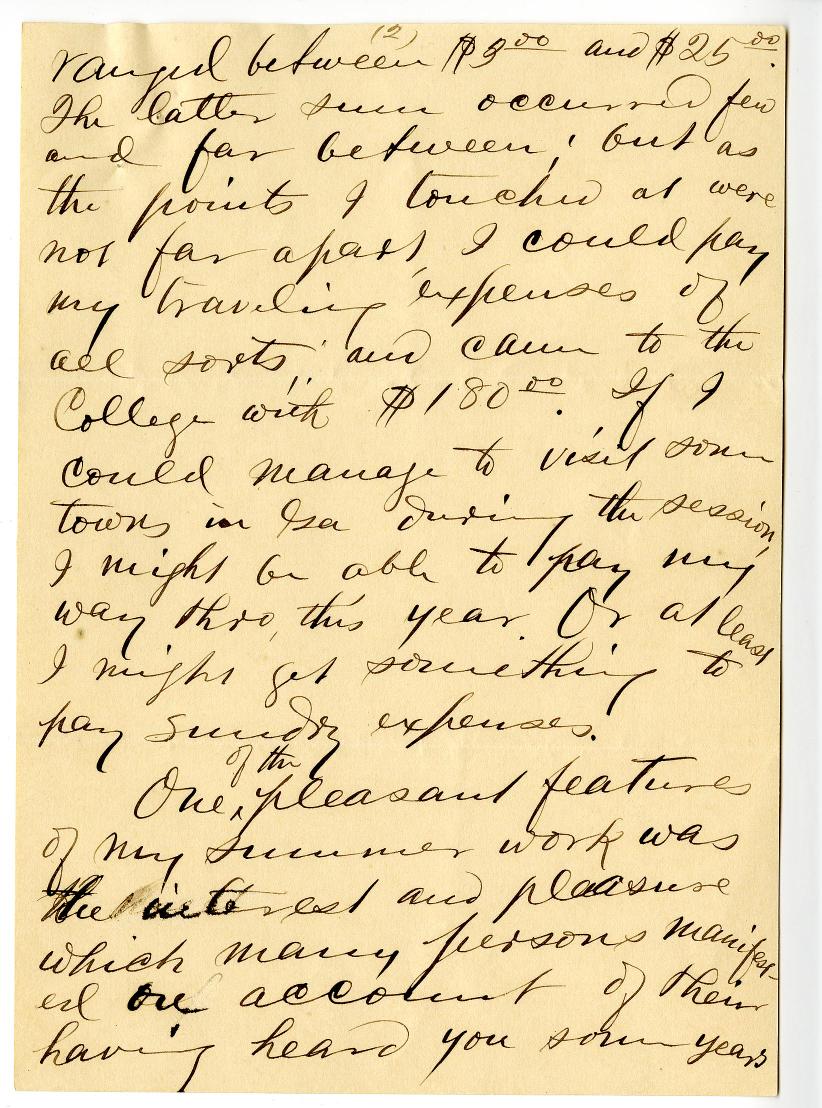 (2)
ranged between $3.00 and $25.00.
The latter sum occurred few
and far between; but as
the points I touched at were
not far apart, I could pay
my traveling expenses of
all sorts, and came to the
College with $180.00. If I
could manage to visit some
towns in Ga during the session,
I might be able to pay my
way thro, this year. Or at least
I might get something to
pay sundry expenses.
One of the pleasant features
of my summer work was
the interest and pleasure
which many persons manifest-
ed on account of their
having heard you some years